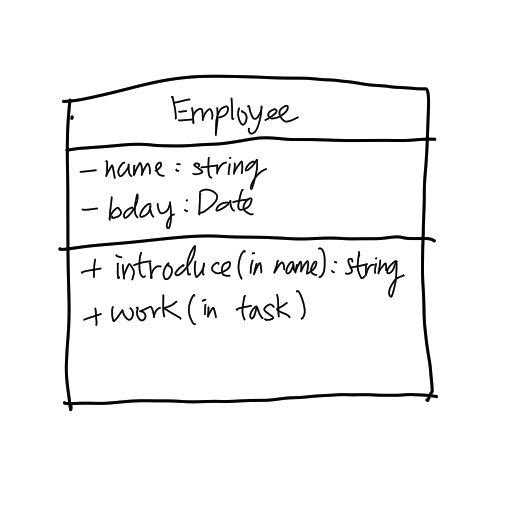 Employee
- name : string
- bday : Date
+ introduce (in name) : string
+ work (in task)